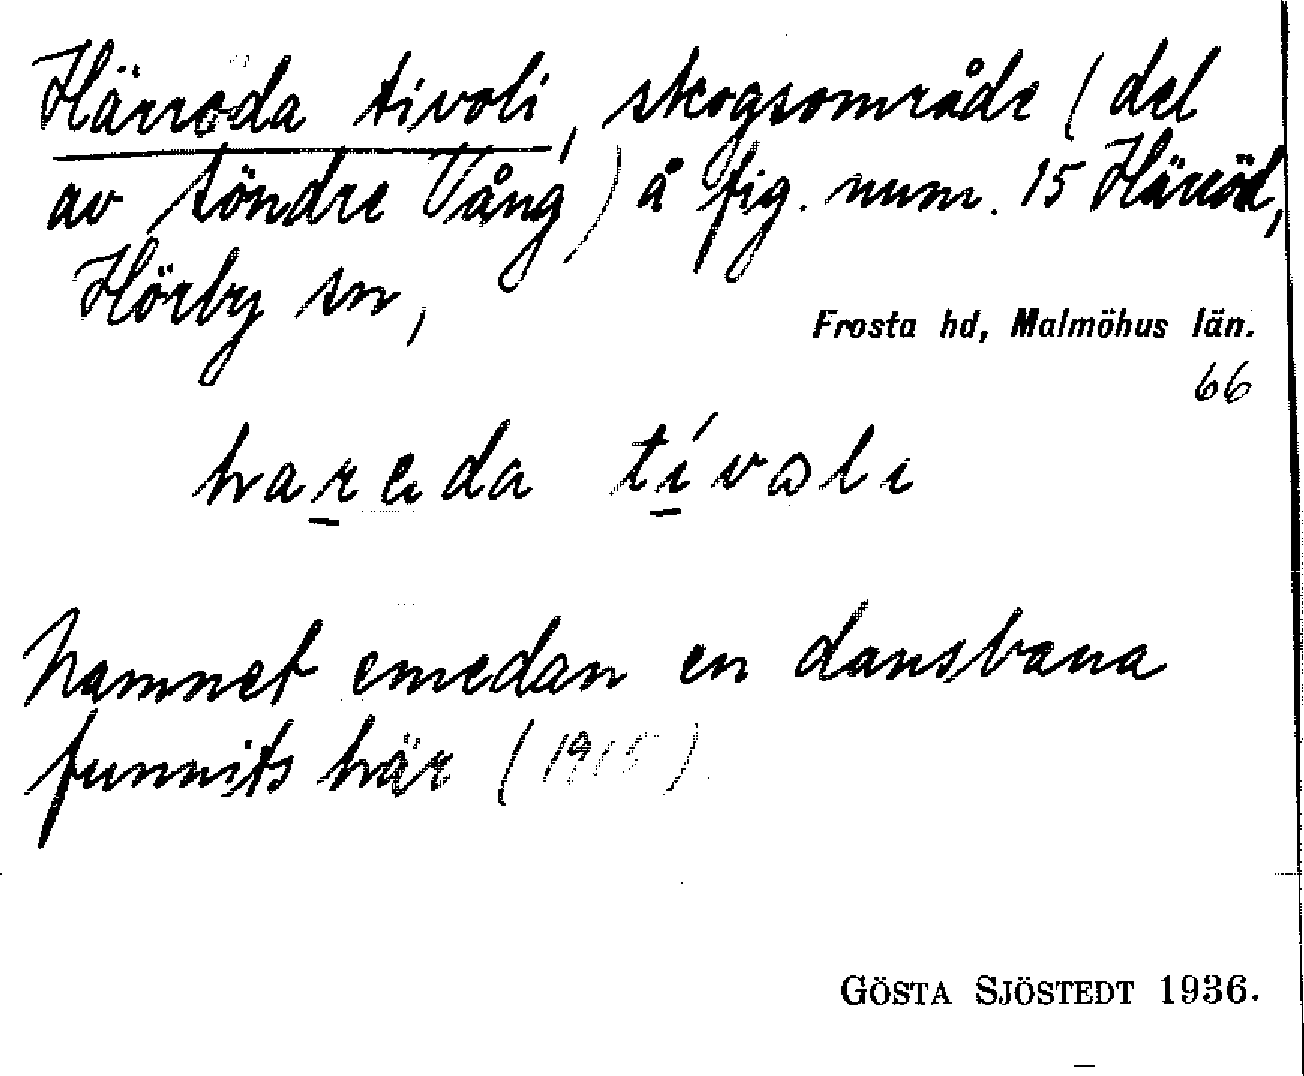 Härröda tivoli, skogsområde (del
av söndre Vång) å fig. num. 15 Härröd,
Hörby sn,
Frosta hd, Malmöhus län.
66
tívoli
Namnet emedan en dansbana
funnits här (1915).
GÖSTA SJÖSTEDT 1936.